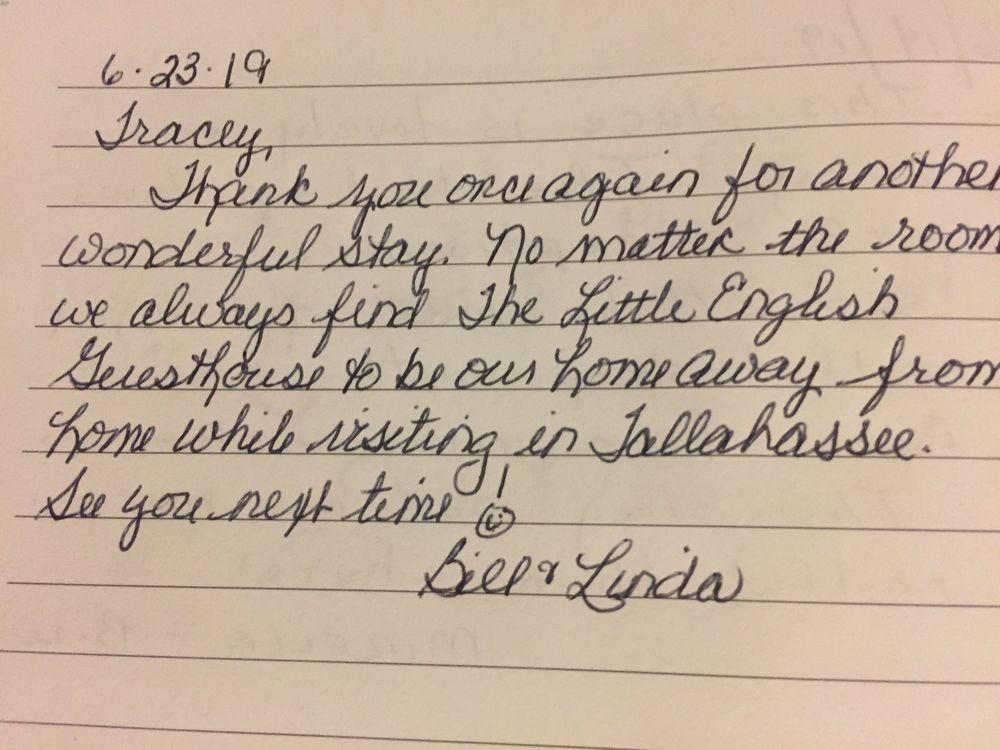 6.23.19
Tracey,
Thank you once again for another
wonderful stay. No matter the room
we always find The Little English
Guesthouse to be our home away from
home while visiting in Tallahassee.
See you next time! ☺
Bill & Linda